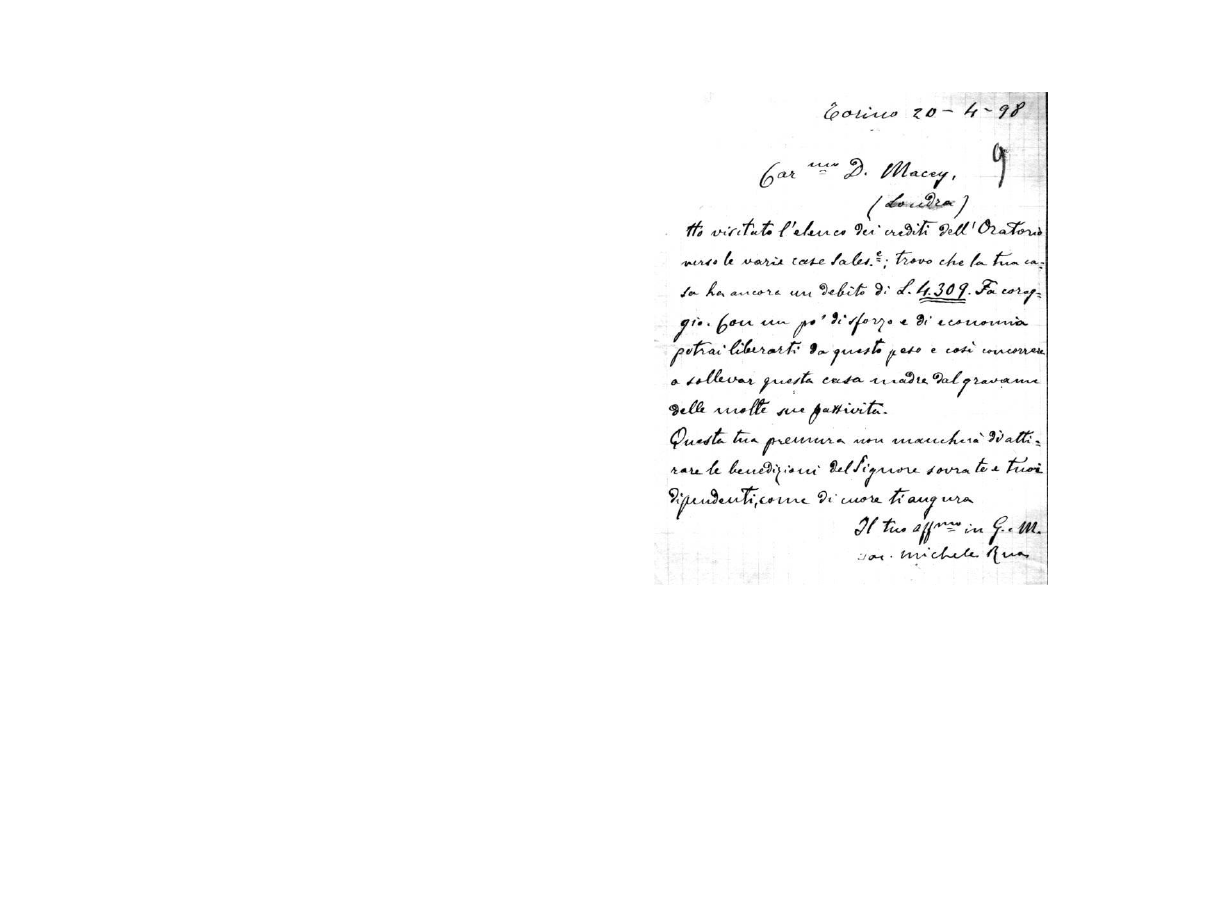 Torino 20-4-98
9
Car mo D. Macey,
(Londra)
Ho visitato l'elenco dei crediti dell'Oratorio
verso le varie case Sales.e; trovo che la tua ca=
sa ha ancora un debito di L. 4.309. Fa corag=
gio. Con un po' di sforzo e di economia
potrai liberarti da questo peso e così concorrere
a sollevar questa casa madre dal gravame
delle molte sue passività.
Questa tua premura non mancherà di atti=
rare le benedizioni del Signore sovra te e tuoi
dipendenti, come di cuore ti augura
Il tuo aff mo in G. e M.
Sac. Michele Rua